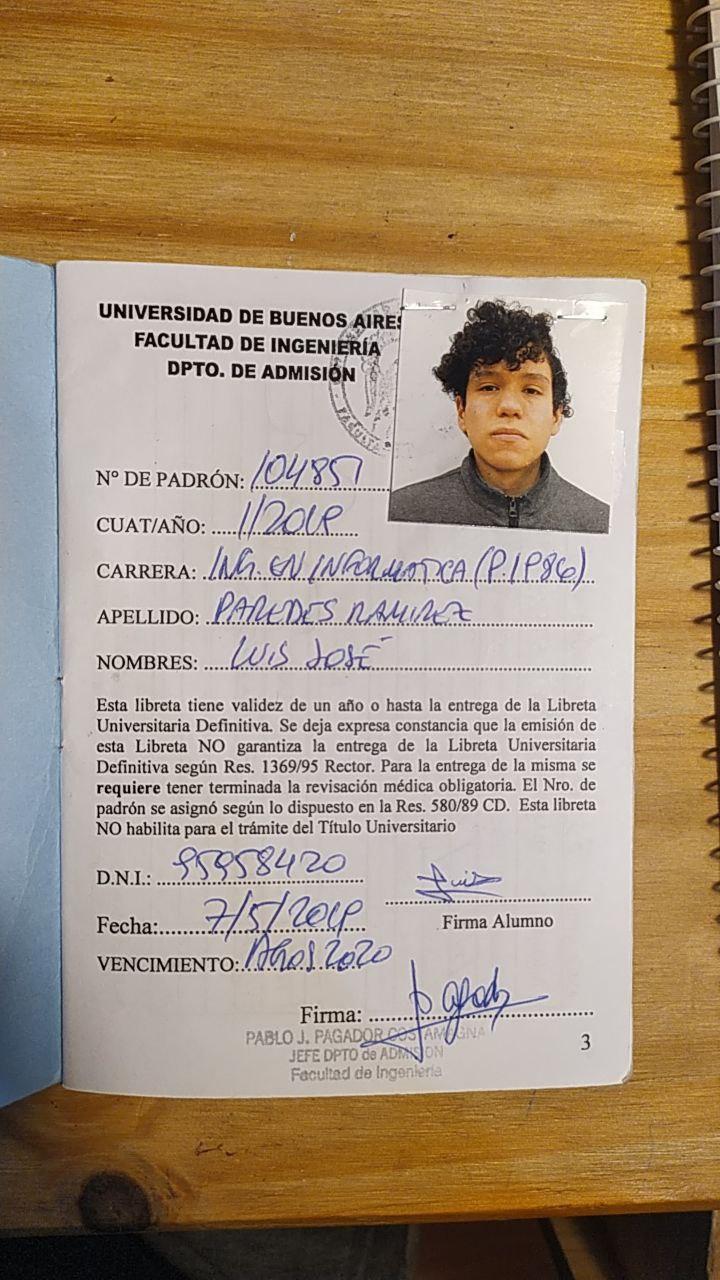 UNIVERSIDAD DE BUENOS AIRES
FACULTAD DE INGENIERÍA
DPTO. DE ADMISIÓN
N° DE PADRÓN: 104851
CUAT/AÑO: 1/2019
CARRERA: ING. EN INFORMATICA (P.1986)
APELLIDO: PAREDES RAMIREZ
NOMBRES: LUIS JOSÉ
Esta libreta tiene validez de un año o hasta la entrega de la Libreta
Universitaria Definitiva. Se deja expresa constancia que la emisión de
esta Libreta NO garantiza la entrega de la Libreta Universitaria
Definitiva según Res. 1369/95 Rector. Para la entrega de la misma se
requiere tener terminada la revisación médica obligatoria. El Nro. de
padrón se asignó según lo dispuesto en la Res. 580/89 CD. Esta libreta
NO habilita para el trámite del Título Universitario
D.N.I.: 95958420
Luis
Fecha: 7/5/2019
Firma Alumno
VENCIMIENTO: AGOS 2020
Firma:
PABLO J. PAGADOR COSTAMAGNA
JEFE DPTO de ADMISION
Facultad de Ingeniería
3